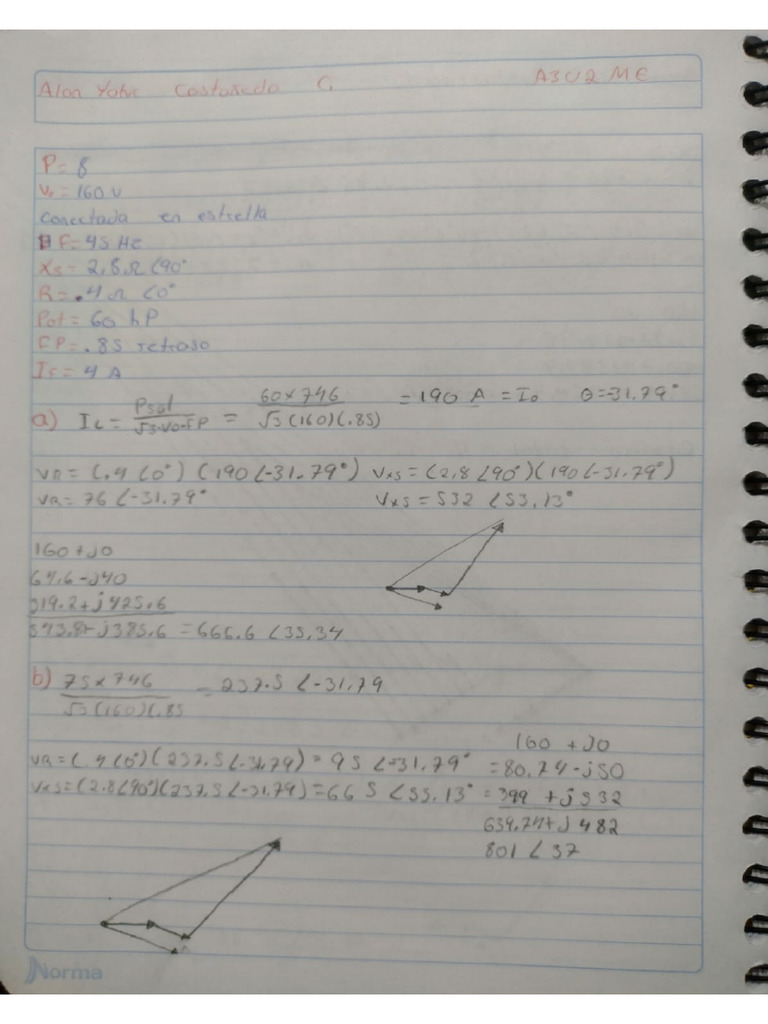 A3U2 ME
P= 8
= 160 V
Conectada en estrella
F= 45 Hz
Xs= 2,8 Ω ∠90°
R= .4 Ω ∠0°
Pot= 60 hP
FP= .85 retraso
4 A
a) IL = Psal / √3·Vo·FP = 60x746 / √3(160)(.85) = 190 A = Io θ=-31.79°
VR = (.4∠0°) (190∠-31.79°) Vxs = (2,8∠90°)(190∠-31.79°)
VR= 76 ∠-31.79° Vxs = 532 ∠53,13°
160 + j0
64.6 - j40
319.2 + j425.6
543.8+j385.6 = 666.6 ∠35,34
b) 75x746 / √3(160)(.85 = 237.5 ∠-31,79
160 + j0
VR= (.4∠0°)(237.5∠-31,79) = 95 ∠-31,79° = 80.74 - j50
Vxs= (2.8∠90°)(237,5∠-31,79) = 665 ∠53.13° = 399 + j532
639.74+j482
801 ∠37
Norma